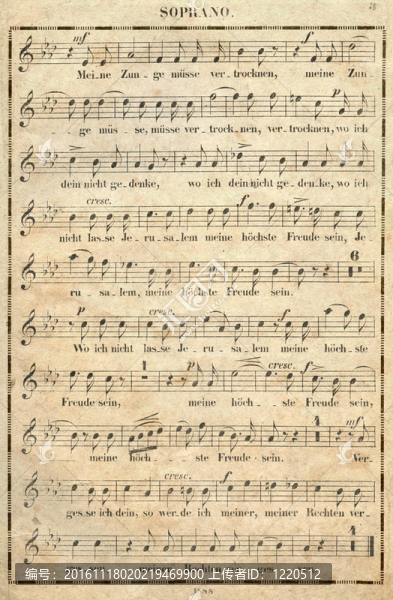 SOPRANO.
mf
Mei_ne Zun_ge müsse ver_trocknen, meine Zun_
p
_ge müs_se, müsse ver_trock_nen, ver_trocknen, wo ich
dein nicht ge_denke, wo ich dein nicht ge_den_ke, wo ich
cresc. f
nicht las_se Je_ru_sa_lem meine höchste Freude sein, Je_
6
ru_sa_lem, meine höch_ste Freude sein.
p cresc. f
Wo ich nicht las_se Je_ru_sa_lem meine höch_ste
1 p cresc. f
Freude sein, meine höch_ste Freude sein,
4 mf
meine höch_ste Freude sein. Ver_
cresc. f
ges_se ich dein, so wer_de ich meiner, meiner Rechten ver_
4
编号: 20161118020219469900 上传者ID: 1220512